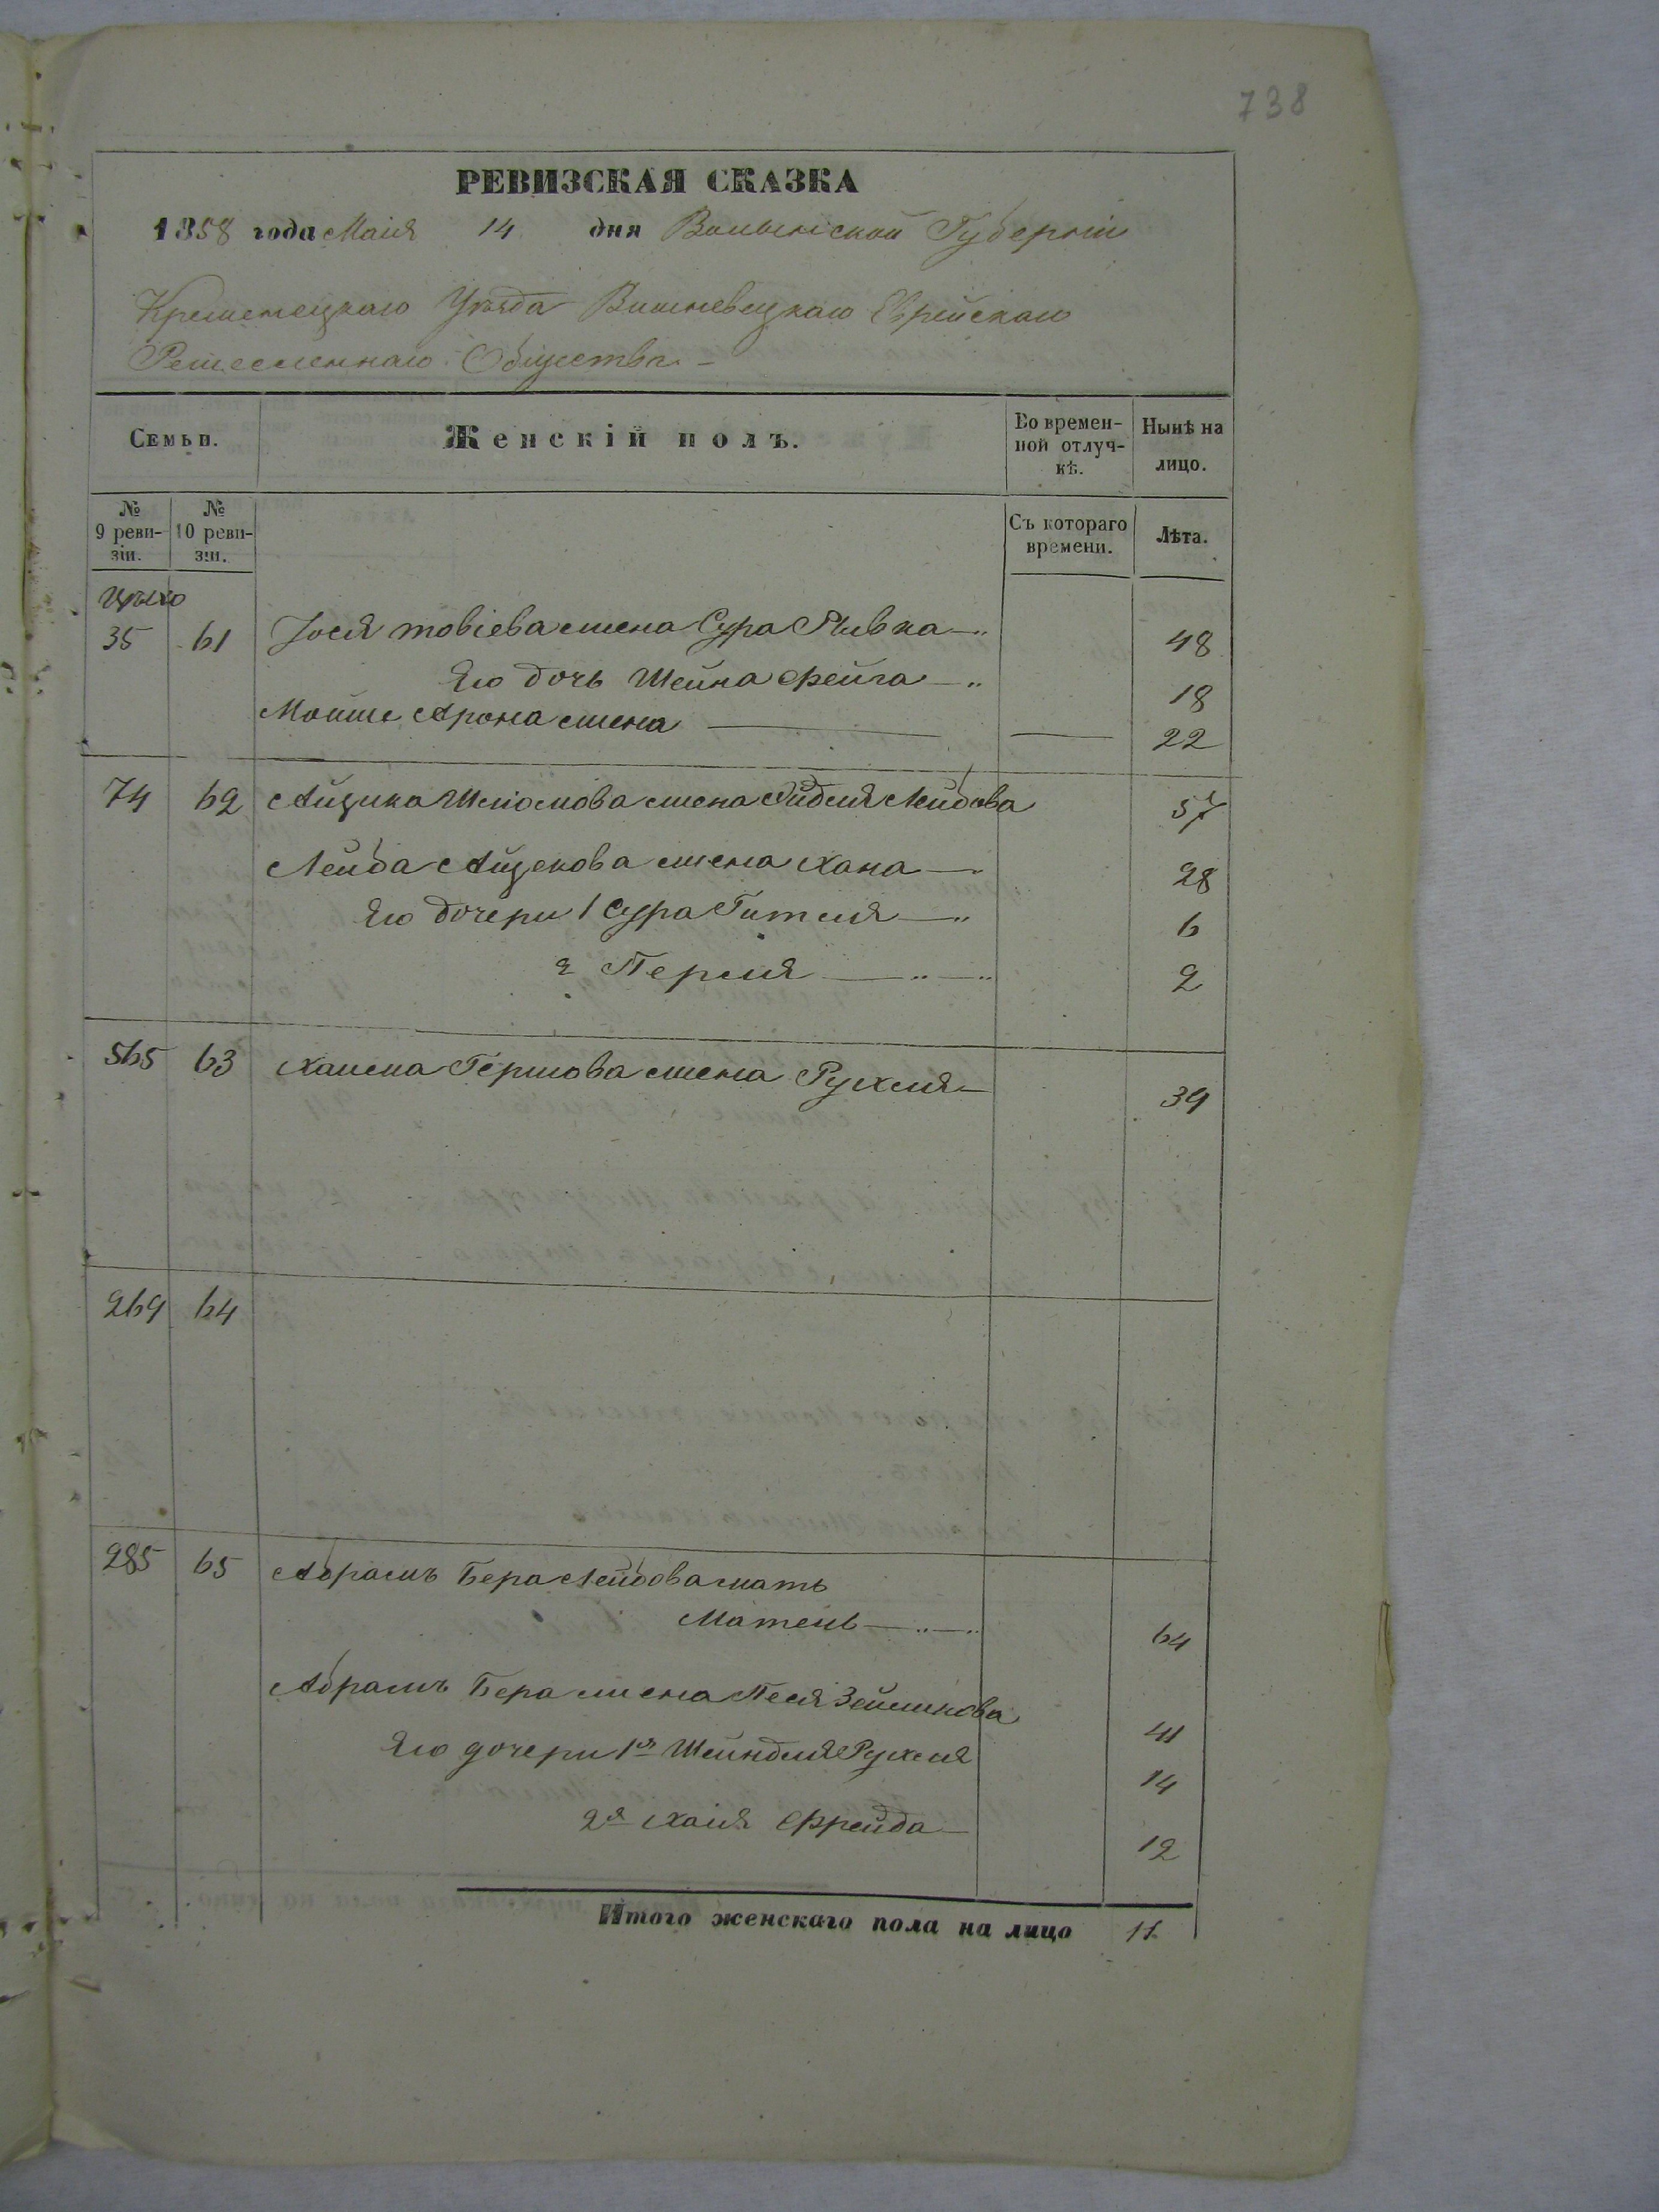 738
РЕВИЗСКАЯ СКАЗКА
1858 года Маія 14 дня Волынской Губерніи
Кременецкаго Уѣзда Вишневецкаго Еврейскаго
Ремесленнаго Общества
Семьи. Женскій полъ. Во времен-ной отлуч-кѣ. Нынѣ на лицо.
№ 9 реви-зіи. № 10 реви-зіи. Съ котораго времени. Лѣта.
35 61 Іося Товіева жена Сура Ривка 48
Его дочь Шейна Фейга 18
Мошие Арона жена 22
74 62 Айзика Шліомова жена Эйдля Лейбова 57
Лейба Айзекова жена Хана 28
Его дочери 1 Сура Гителя 6
2 Перля 2
565 63 Хаима Гершова жена Рухля 39
269 64
285 65 Абрамъ Бера Лейбова мать
Матель 64
Абрамъ Бера жена Песя Зейликова 41
Его дочери 1я Шейндля Рухля 14
2я Хаія Фрейда 12
Итого женскаго пола на лицо 11